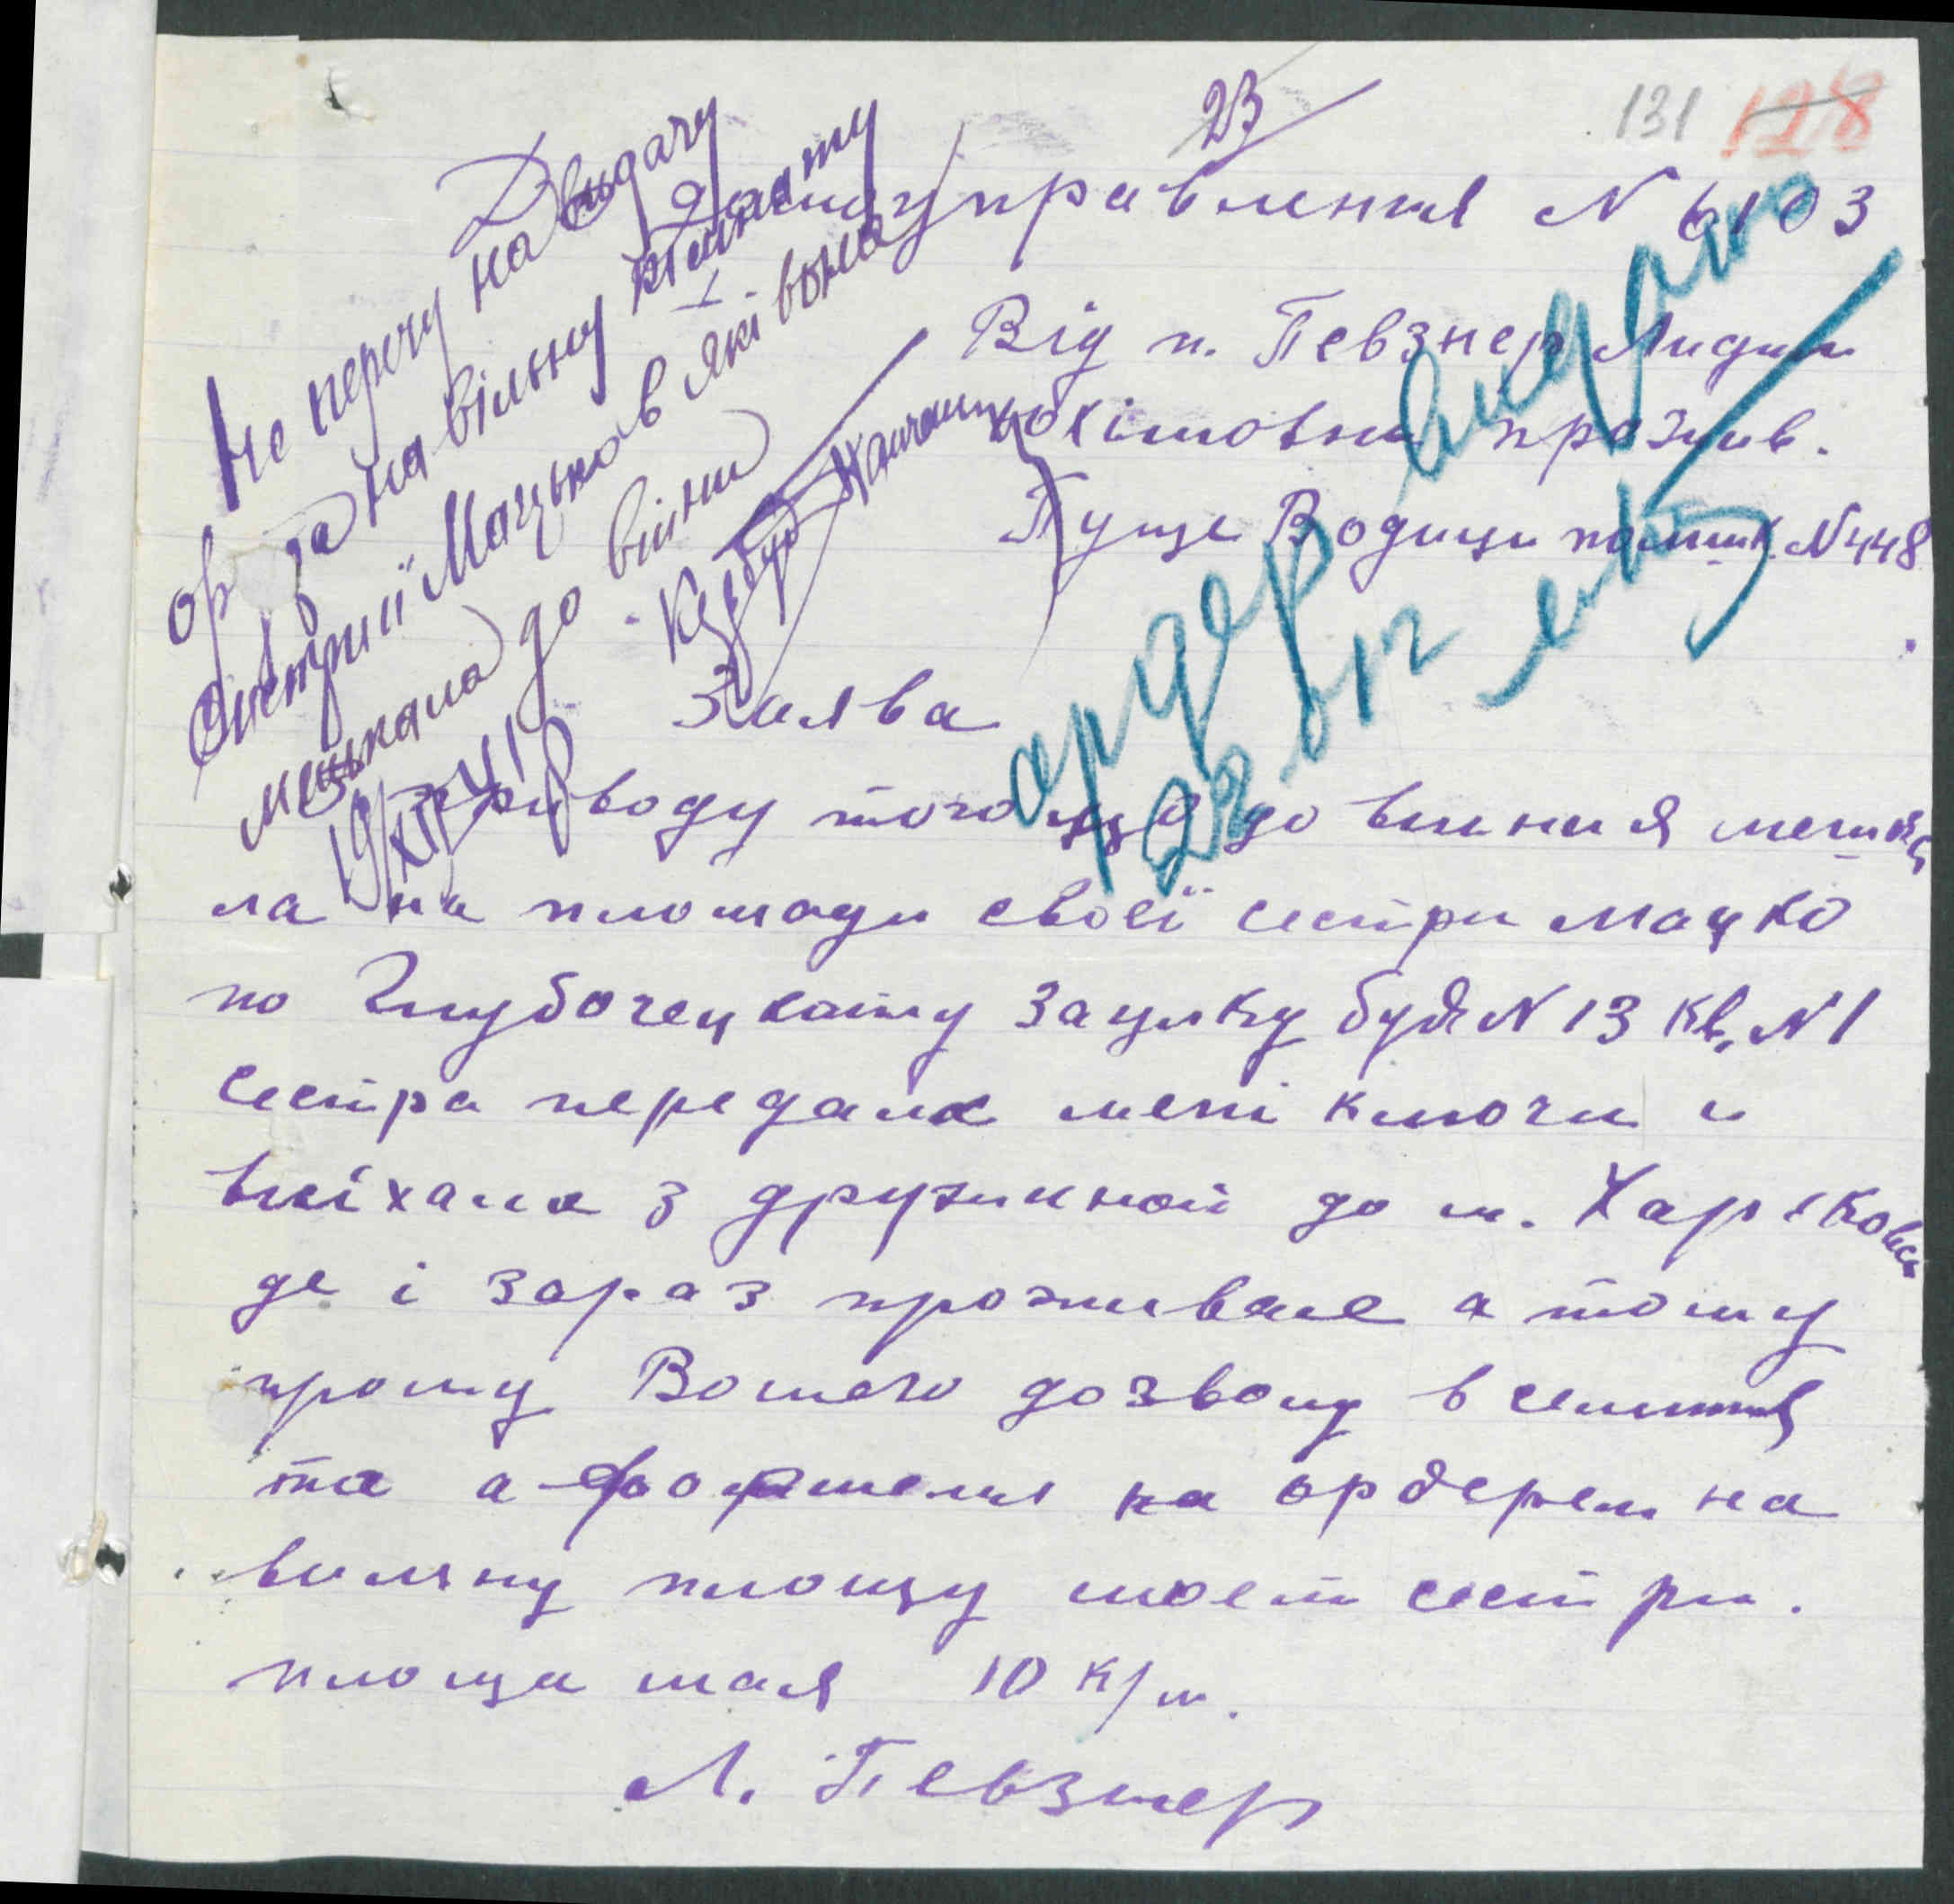 23
131 128
До управления N 6103
Від п. Певзнер Лидии
прожив.
Пуще Водици помешк. N 448
Не перечу на видачу
ордера на вільну кімнату
сестрии її Мацько в якій вона
мешкала до війни
19/XII 41 р
ордер видано
22
Заява
З приводу того що до винния мешка
ла на площади своєї сестри Мацко
по Глубочецкому заулку буд N 13 кв. N 1
Сестра передала мені ключи и
виїхала з дружиной до м. Харькова
де і зараз проживае а тому
прошу Вашего дозволу вселитця
та а формлення на ордерем на
вильну площу моеи сестри.
площа мая 10 к/м.
Л. Певзнер